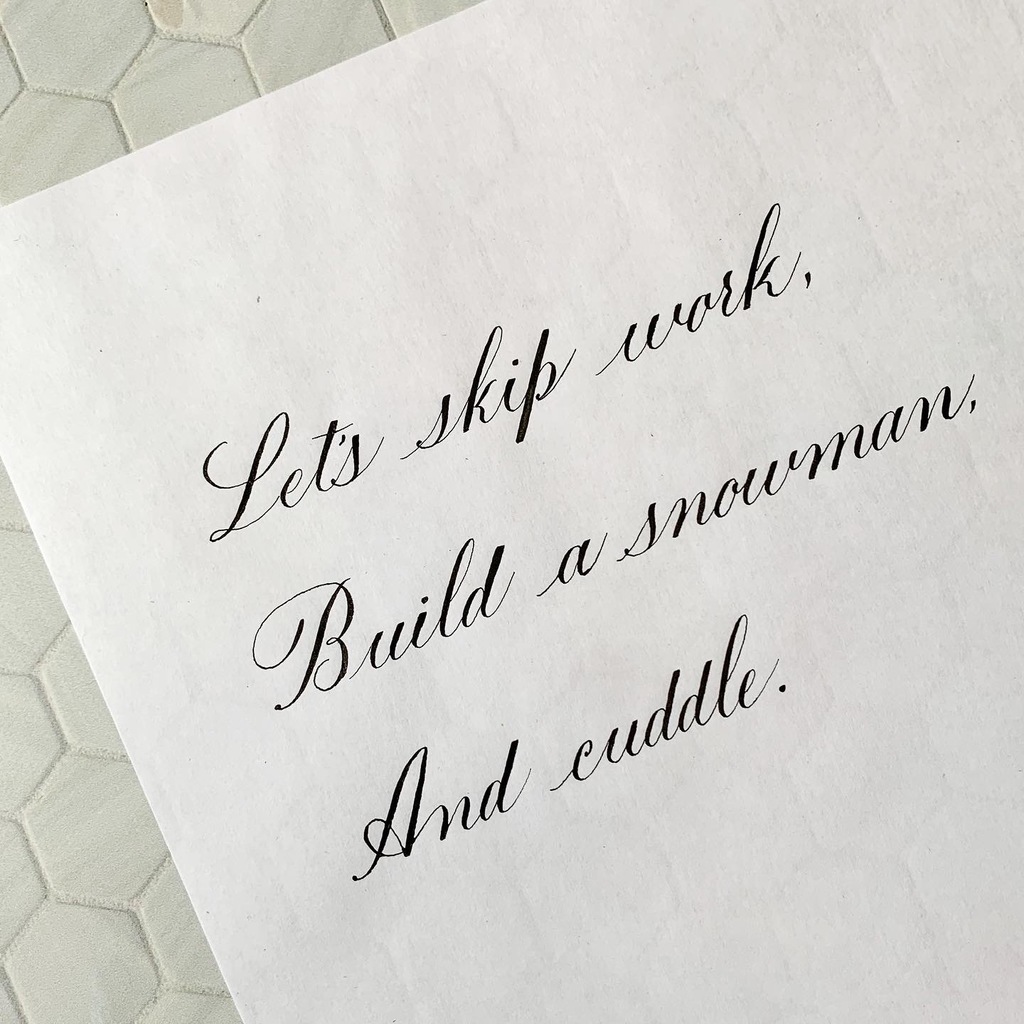 Let's skip work,
Build a snowman,
And cuddle.